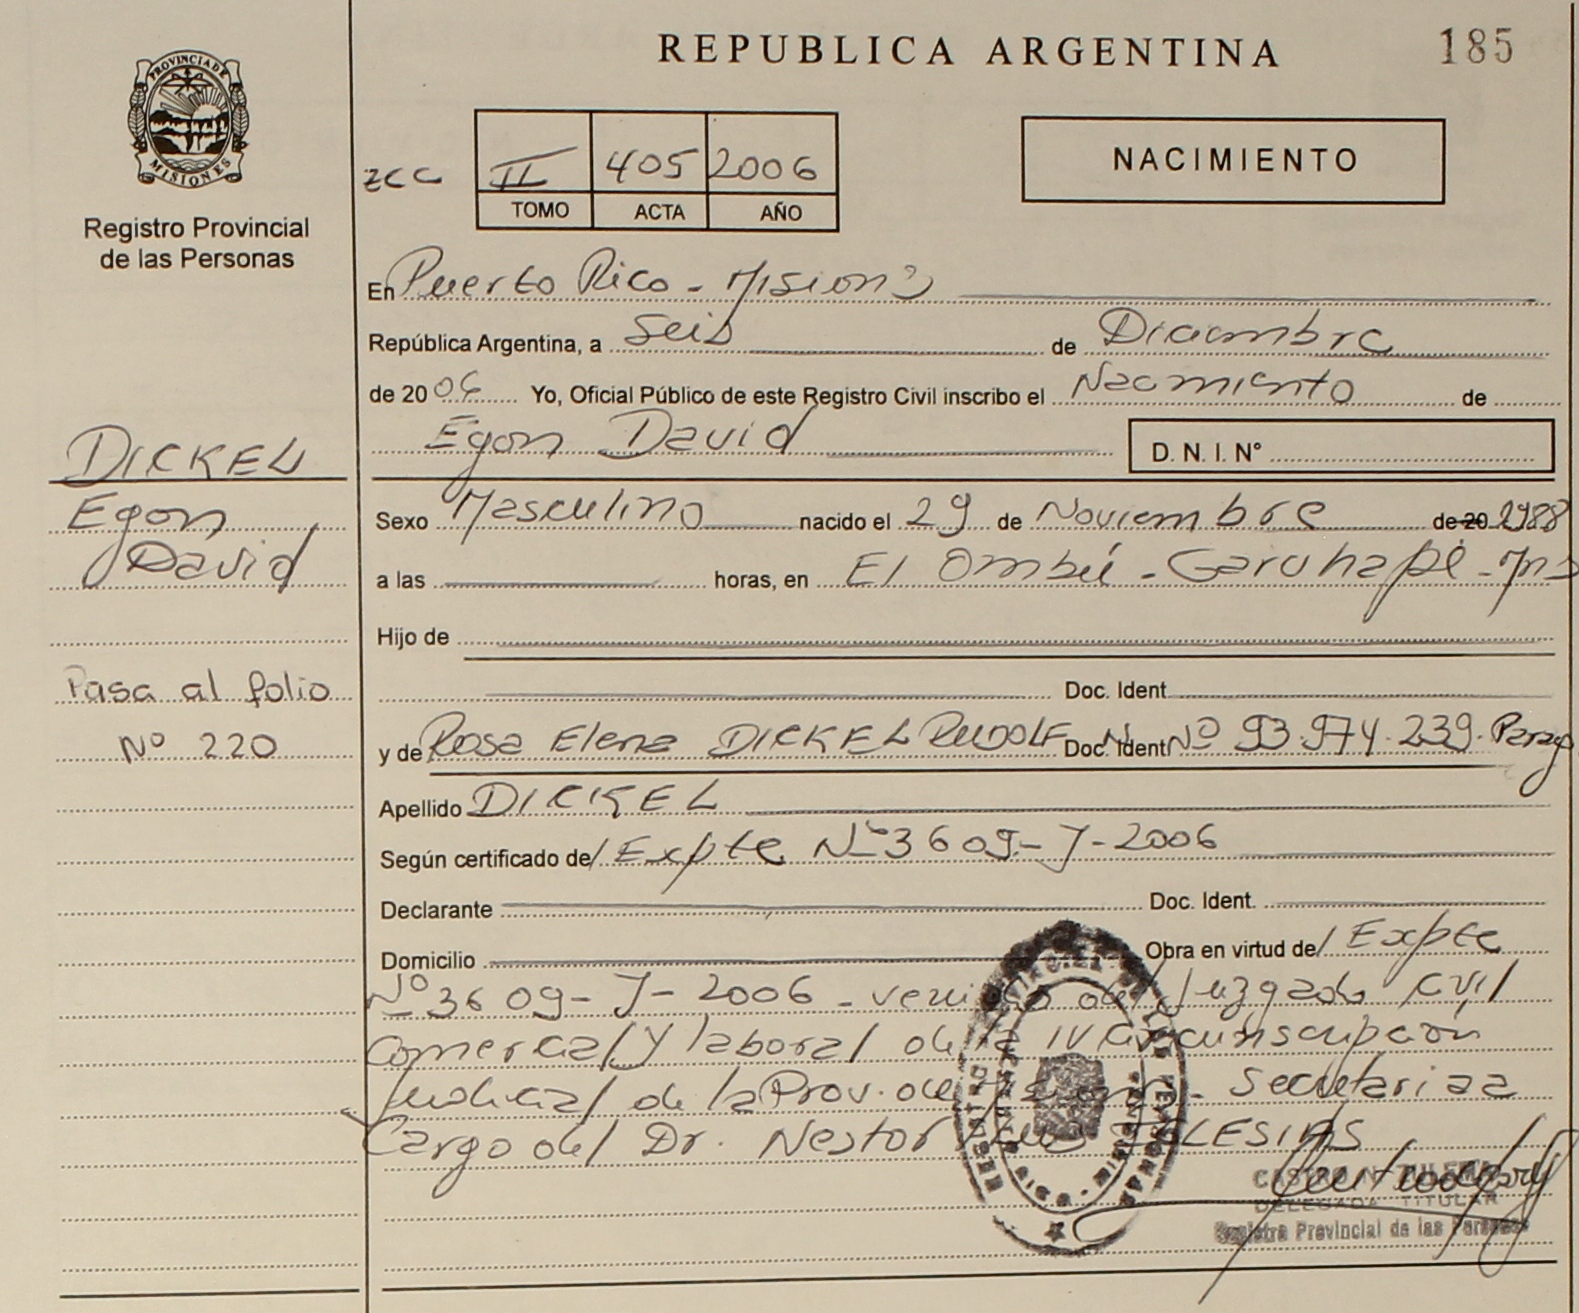 REPUBLICA ARGENTINA
185
PROVINCIA DE MISIONES
Registro Provincial
de las Personas
ZCC
II 405 2006
TOMO ACTA AÑO
NACIMIENTO
En Puerto Rico - Misiones
República Argentina, a Seis de Diciembre
de 2006 Yo, Oficial Público de este Registro Civil inscribo el Nacimiento de
Egon David D. N. I. Nº
DICKEL
Egon
David
Sexo Masculino nacido el 29 de Noviembre de 20 1988
a las horas, en El Ombú - Garuhapé - Mns
Hijo de
Pasa al folio
Nº 220
Doc. Ident
y de Rosa Elena DICKEL RUDOLF Doc. Ident Nº 93.974.239. Parag
Apellido DICKEL
Según certificado de/ Expte Nº 3609-J-2006
Declarante Doc. Ident.
Domicilio Obra en virtud de/ Expte
Nº 3609-J-2006 - del Juzgado Civil
Comercial y laboral de la IV Circunscripción
Judicial de la Prov. de - Secretaria a
Cargo del Dr. Nestor IGLESIAS
DELEGADA TITULAR
Registro Provincial de las Personas